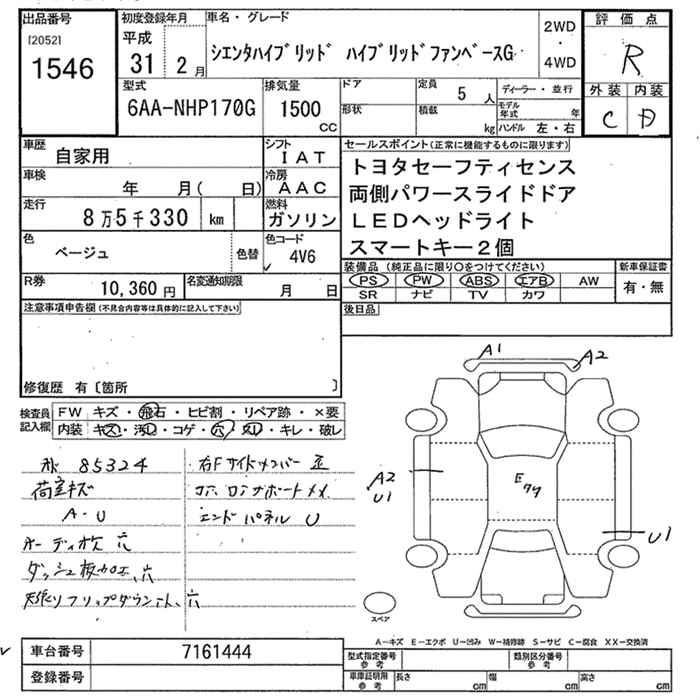 出品番号
[2052]
1546
初度登録年月
平成
31 2月
車名・グレード
シエンタハイブリッド ハイブリッドファンベースG
2WD
・
4WD
評価点
R
外装 内装
C D
型式
6AA-NHP170G
排気量
1500
CC
ドア
形状
定員
5 人
積載
kg
ディーラー・並行
モデル年式 年
ハンドル 左・右
車歴
自家用
シフト
IAT
車検
年 月( 日)
冷房
AAC
走行
8万5千330 km
燃料
ガソリン
色
ベージュ
色替
色コード
4V6
R券
10,360円
名変通知期限
月 日
セールスポイント(正常に機能するものに限ります)
トヨタセーフティセンス
両側パワースライドドア
LEDヘッドライト
スマートキー2個
装備品(純正品に限り○をつけてください)
PS PW ABS エアB AW
SR ナビ TV カワ
新車保証書
有・無
後日品
注意事項申告欄(不具合内容等は具体的に記入して下さい)
修復歴 有〔箇所 〕
検査員記入欄
FW キズ・飛石・ヒビ割・リペア跡・×要
内装 キズ・汚レ・コゲ・穴・スレ・キレ・破レ
85324
荷室キズ
A-U
オーディオ欠 穴
ダッシュ板加工、穴
天張リフリップダウン 穴
右Fサイドメンバー
エンドパネル U
A1
A2
A2
U1
E
U1
スペア
A-キズ E-エクボ U-凹み W-補修跡 S-サビ C-腐食 XX-交換済
車台番号
7161444
登録番号
型式指定番号
参考
類別区分番号
参考
車庫証明用
参考
長さ cm
幅 cm
高さ cm